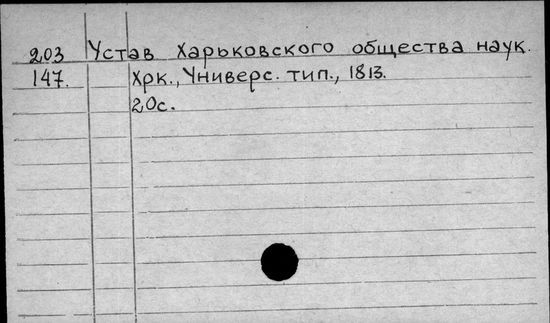 203 Устав Харьковского общества наук.
147. Хрк., Универс. тип., 1813.
20с.